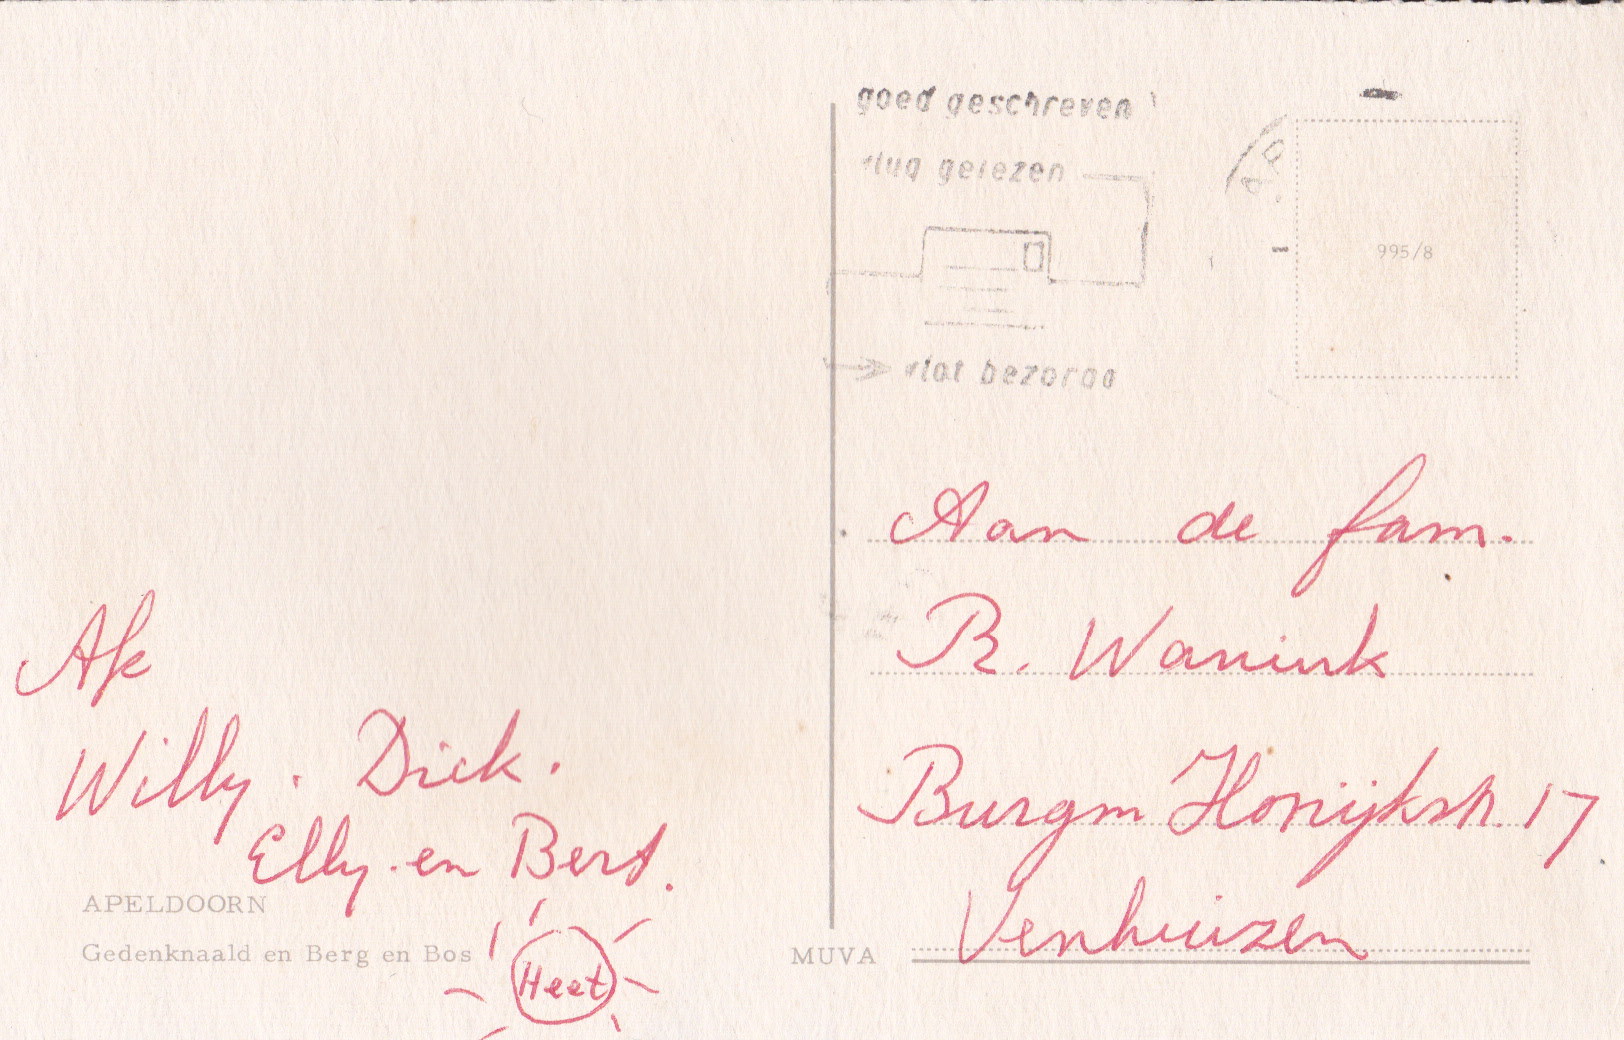 goed geschreven
vlug gelezen
vlot bezorgd
995/8
Aan de fam.
R. Wanink
Burgm Honijkstr. 17
Venhuizen
Afz
Willy. Dick.
Elly. en Bert.
APELDOORN
Gedenknaald en Berg en Bos
Heet
MUVA